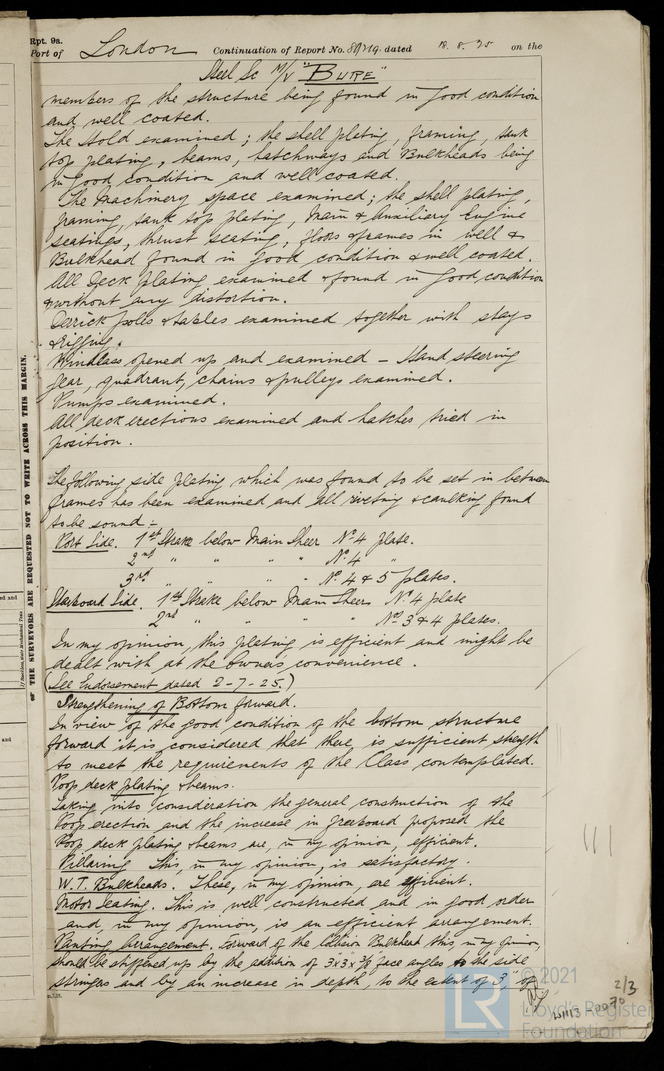 Rpt. 9a.
Port of London Continuation of Report No. dated 18. 8. 25 on the
Steel Sc M/V "BURE"
members of the structure being found in good condition
and well coated.
The Hold examined; the shell plating, framing, tank
top plating, beams, hatchways and Bulkheads being
in good condition and well coated.
The Machinery space examined; the shell plating,
framing, tank top plating, Main & Auxiliary Engine
seatings, thrust seating, floors & frames in well &
Bulkhead found in good condition & well coated.
All Deck plating examined & found in good condition
& without any distortion.
Derrick poles & tables examined together with stays
& rigging.
Windlass opened up and examined – Hand steering
gear, quadrant, chains & pulleys examined.
Pumps examined.
All deck erections examined and hatches tried in
position.
The following side plating which was found to be set in between
frames has been examined and all riveting & caulking found
to be sound :-
Port Side. 1st Strake below Main Sheer No 4 plate.
2nd " " " " No 4 "
3rd " " " " No 4 & 5 plates.
Starboard Side. 1st Strake below Main Sheers No 4 plate
2nd " " " " Nos 3 & 4 plates.
In my opinion, this plating is efficient and might be
dealt with at the Owners convenience.
(See Endorsement dated 2-7-25.)
Strengthening of Bottom forward.
In view of the good condition of the bottom structure
forward it is considered that there is sufficient strength
to meet the requirements of the Class contemplated.
Poop deck plating & beams.
Taking into consideration the general construction of the
Poop erection and the increase in freeboard proposed the
Poop deck plating & beams are, in my opinion, efficient.
Pillaring This, in my opinion, is satisfactory.
W.T. Bulkheads. These, in my opinion, are efficient.
Motor Seating. This is well constructed and in good order
and, in my opinion, is an efficient arrangement.
Panting Arrangement. Forward of the Collision Bulkhead this, in my opinion,
should be stiffened up by the addition of 3"x3"x3/8" face angles to the side
stringers and by an increase in depth, to the extent of 3", of
OF THE SURVEYORS ARE REQUESTED NOT TO WRITE ACROSS THIS MARGIN.
2/3
W1113-0070
LR
© 2021
Lloyd's Register
Foundation